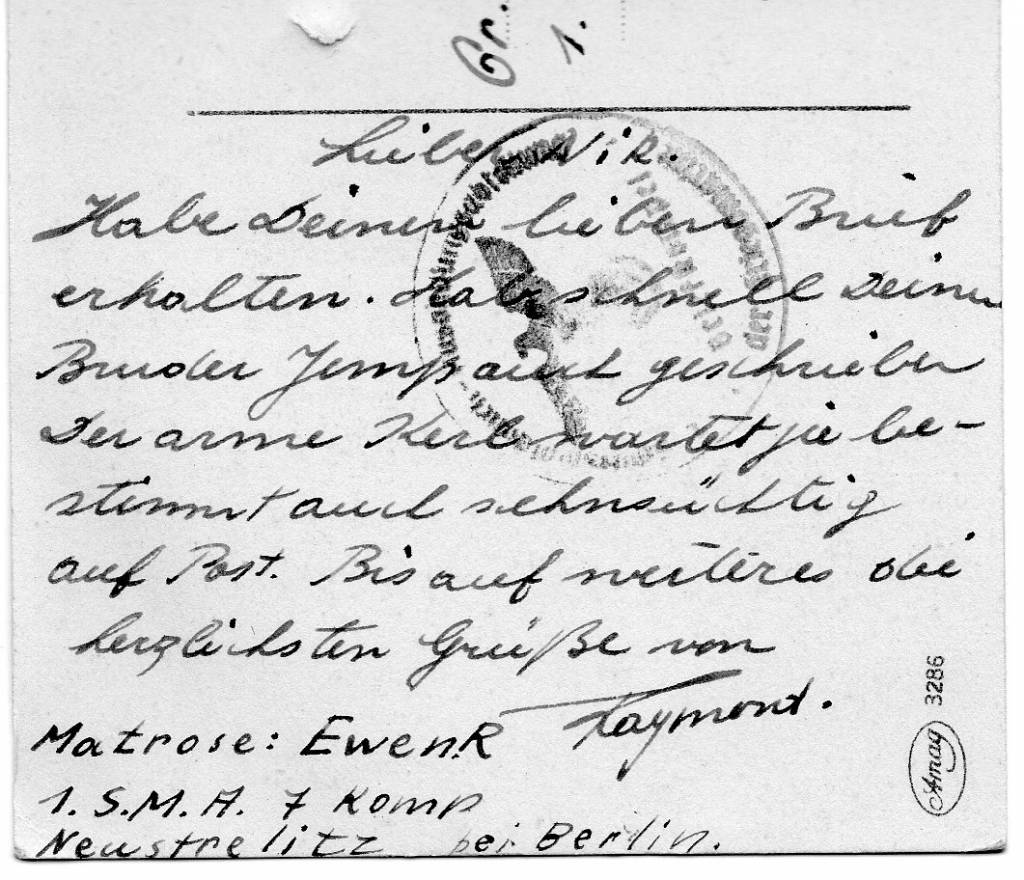 Gr.
1.
Lieber Nik.
Habe Deinen lieben Brief
erhalten. Habe schnell Deinen
Bruder Jemp auch geschrieben
Der arme Kerl wartet ja be-
stimmt auch sehnsüchtig
auf Post. Bis auf weiteres die
herzlichsten Grüße von
Raymond.
Matrose: Ewen R
1. S.M.A. 7 Komp
Neustrelitz bei Berlin.
Amag 3286